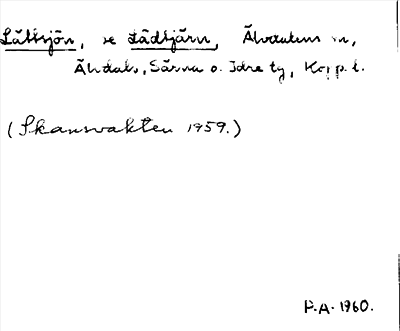 Lättsjön, se Lädtjärn, Älvdalens sn,
Älvdals, Särna o. Idre tg, Kopp. l.
(Skansvakten 1959.)
P.A. 1960.